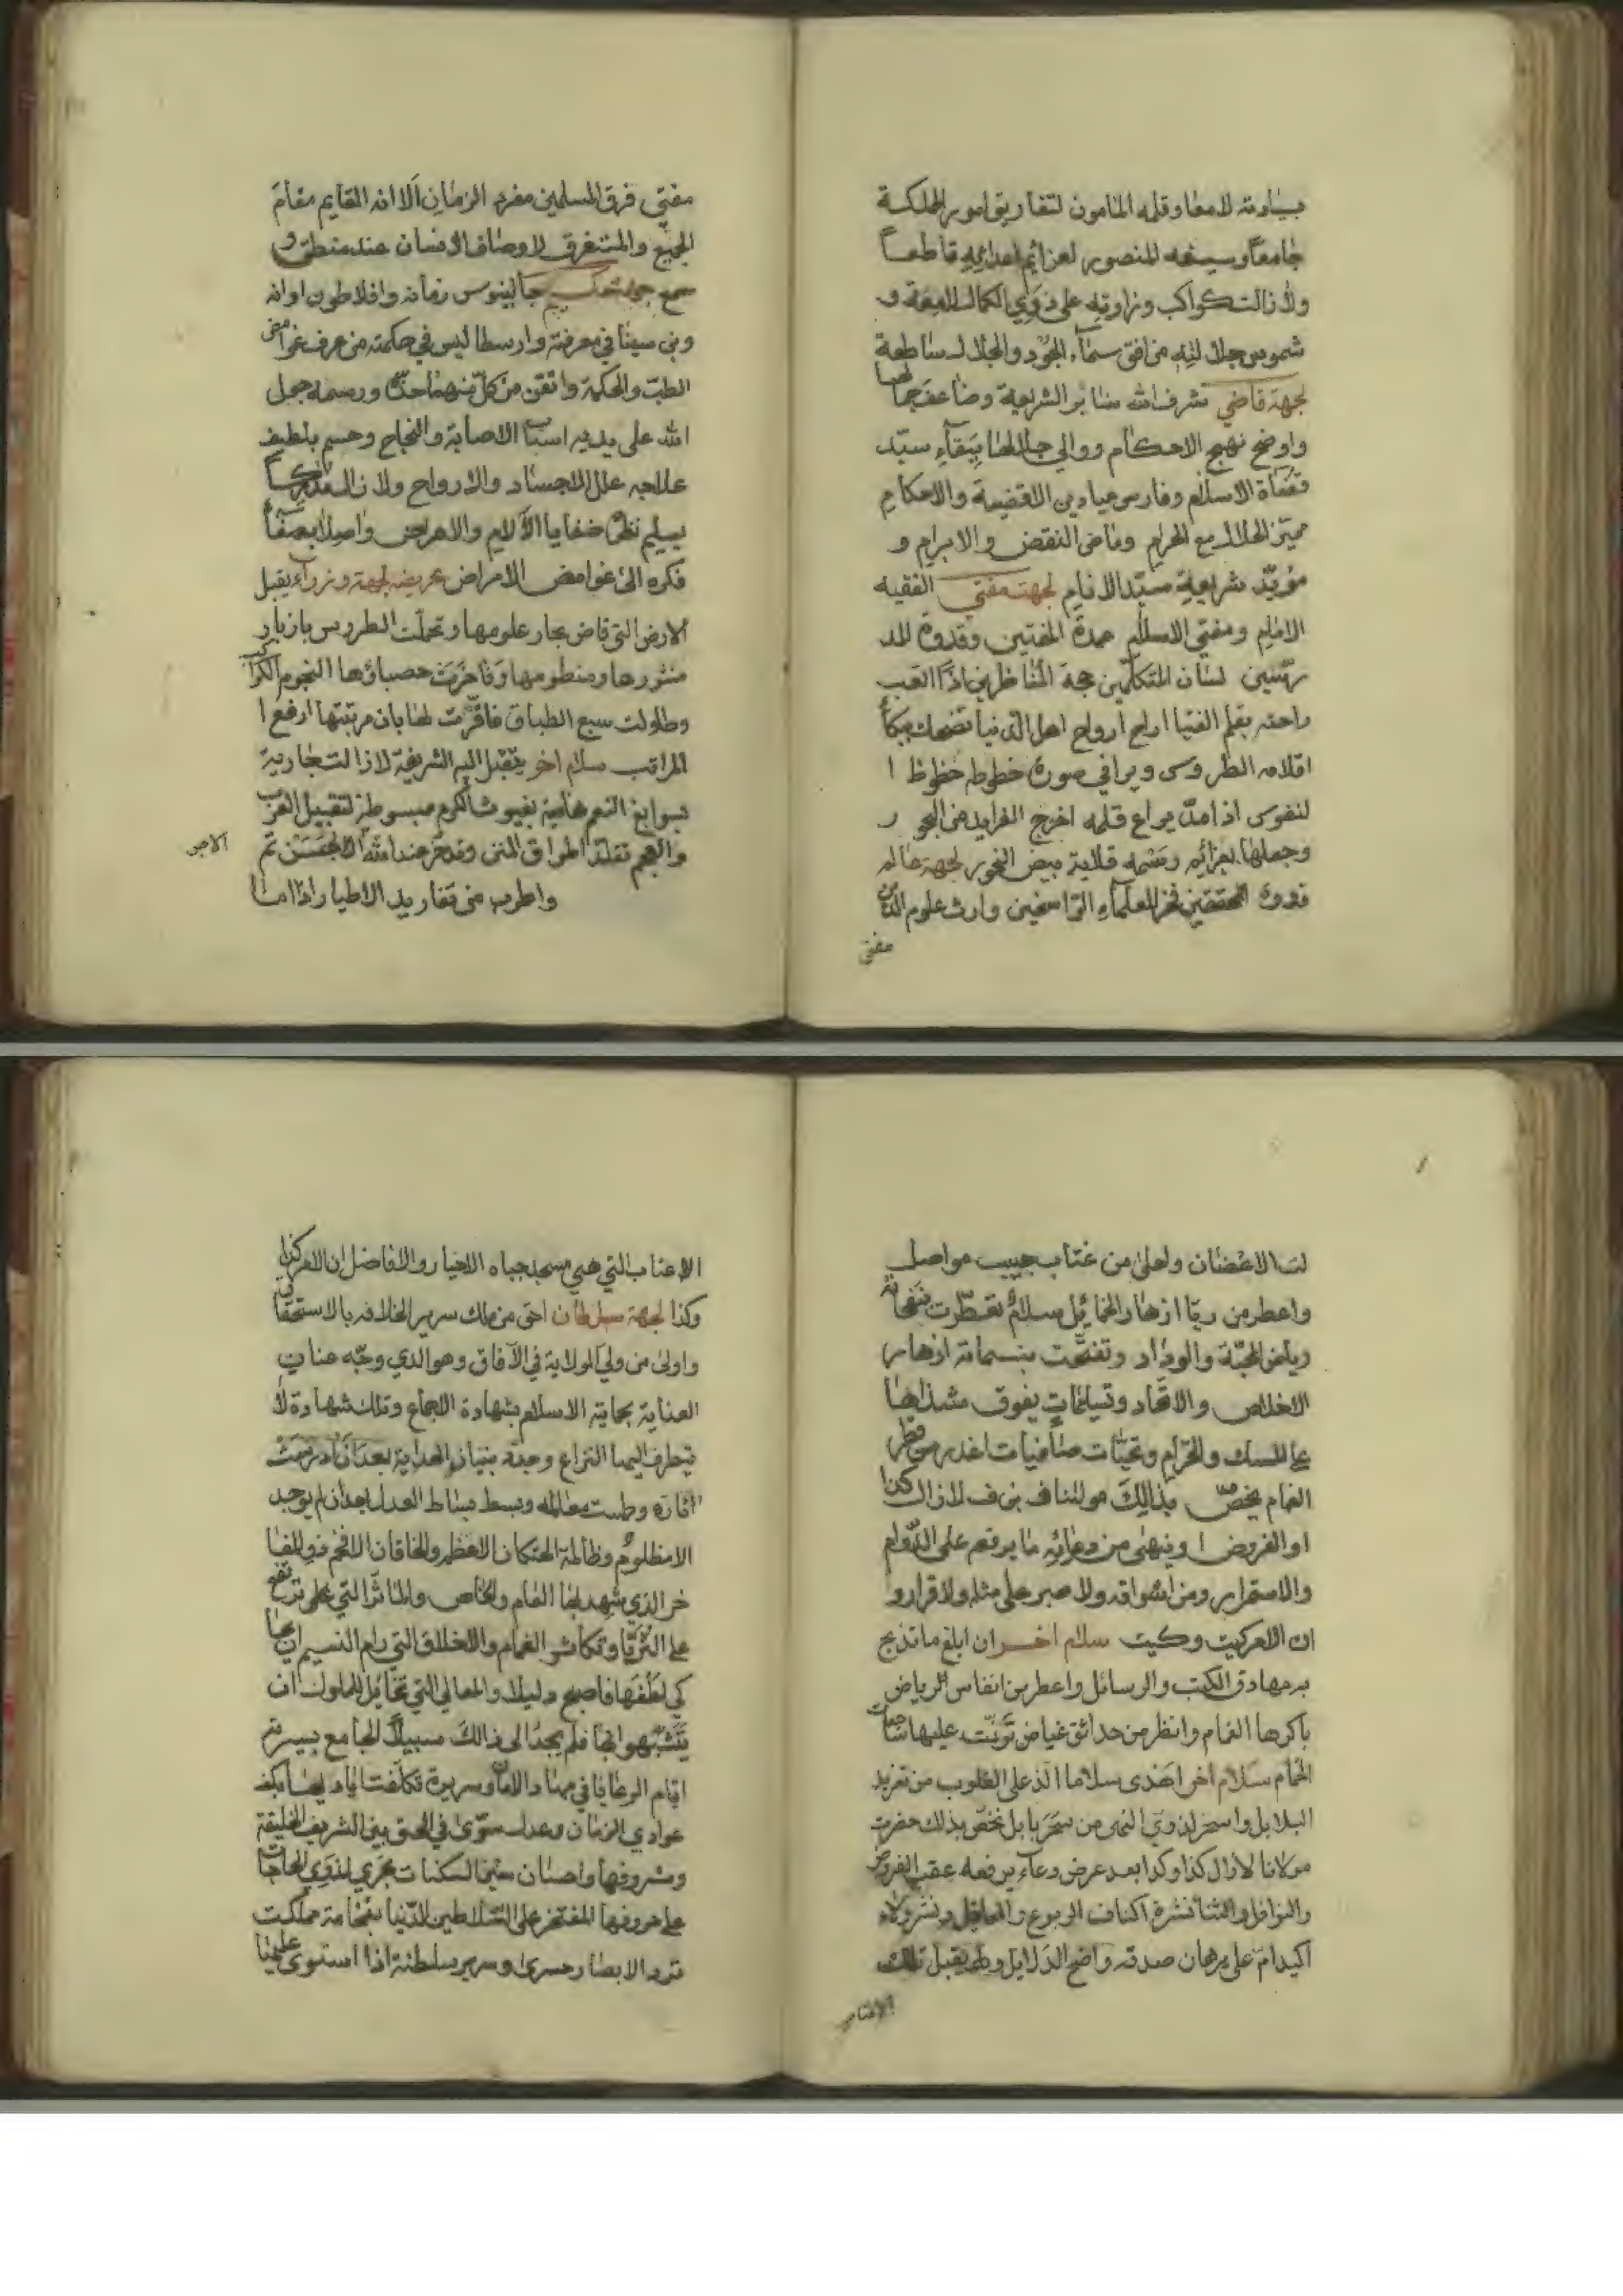 بسيادته لامعا وقلمه المامون لتفاريق امور المملكة
جامعاً وسيفه المنصور لعزائم اعدائه قاطعاً
ولا زالت كواكب وزاوته على ذوي الكمال لامعة و
شموس جلالته من افق سماء الجود والجلال ساطعة
لجهة قاضي شرف الله منابر الشريعة وضاعف جمالها
واوضح نهج الاحكام ووالي جلالها ببقاء سيد
قضاة الاسلام وفارس ميادين الاقضية والاحكام
مميز الحلال مع الحرام وماضي النقض والابرام و
مؤيد شريعة سيد الانام لجهة مفتي الفقيه
الامام ومفتي الاسلام عمدة المفتين وقدوة المد
رسين لسان المتكلمين حجة المناظرين اذا العب
راحته بقلم الفتيا اراح ارواح اهل الدنيا تضحك ببكأ
اقلامه الطروس ويرا في صورة خطوطه حظوظ ا
لنفوس اذا مد يراع قلمه اخرج الفرايد من البحو ر
وجعلها بعزائم قلاية بيض النحور لجهة عالم
قدوة المحققين فخر العلماء الراسخين وارث علوم الدين
مفتي
مفتي فرق المسلمين مفرد الزمان الا انه القايم مقام
الجميع والمستغرق لاوصاف الانسان عند منطق و
سمع جهة حكيم جالينوس زمانه وافلاطون اوانه
وبن سينا في معرفته وارسطاليس في حكمته من عرف غوامض
الطب والحكمة واتقن من كل منهما حده ورسمه جمل
الله على يديه اسباب الاصابة والنجاح وحسم بلطيف
علاجه علل الاجساد والارواح ولا زال مدركاً
بسليم نظره خفايا الآلام والاعراض واصلا بصفأ
فكره الى غوامض الامراض عريضه لجهة وزراء يقبل
الارض التي فاض بحار علومها وتحلت الطروس بازهار
منثورها ومنظومها وفاخرت حصباؤها النجوم الكواكب
وطاولت سبع الطباق فاقرت لها بان مرتبتها ارفع ا
المراتب سلام اخر يقبل اليد الشريفة لا زالت جارية
بسوابغ النعم هامية بغيوث الكرم مبسوطة لتقبيل العرب
والعجم تقلد اطواق المنن وتدخر عند الله الاجر الحسن ثم
الاجر
واطرب من تغاريد الاطيار اذا اما
لت الاغضان واحلى من عتاب حبيب مواصل
واعطر من ريا ازهار الخمائل سلام تعطرت بنفحاته
رياض المحبة والوداد وتفتحت بنسماته ازهار
الاخلاص والاتحاد وتسليمات يفوق مشذاها
على المسك والخزام وتحيات صافيات اغدر من قطر
الغمام يخص بذالك مولانا ف بن ف لا زال كذا
او الفروض ا وينهي من دعائه ما يرفعه على الدوام
والاستمرار ومن اشواقه ولا صبر على مثله ولا قرار و
ان الامر كيت وكيت سلام اخر ان ابلغ ما تدبج
به مهارق الكتب والرسائل واعطر من انفاس الرياض
باكرها الغمام وانظر من حدائق غياض ترنمت عليها ساجعات
الحمام سلام اخر اهدى سلاما الذ على القلوب من تغريد
البلابل واسحر لذوي النهى من سحر بابل نخص بذلك حضرت
مولانا لا زال كذا وكذا بعد عرض دعاء يرفعه عقب الفروض
والنوافل والثنا نشره اكناف الربوع والمحافل ونشر ولاء
اكيد ام على برهان صدقه واضح الدلايل و يقبل تلك
الاعتاب
الاعتاب التي هي مسجد جباه الاخيار والافاضل ان الامر كذا
وكذا لجهة سلطان احق من ملك سرير الخلافه بالاستحقاق
واولى من ولي الولاية في الآفاق وهو الذي وجه عنان
العناية بحماية الاسلام بشهادة الاجماع وتلك شهادة لا
يتطرف اليها النزاع وجدد بنيان الهداية بعد ان درست
آثاره وطمست معالمه وبسط بساط العدل بعد ان لم يوجد
الا مظلوم وظالمه الخنكان الاعظم والخاقان الافخم ذو المفا
خر الذي شهد لها العام والخاص والمآثر التي علي ترتفع
على الثريا وتكاثر الغمام والاخلاق التي رام النسيم ان يحا
كي لطفها فاصبح دليلا والمعالي التي تخايل الملوك ان
يتشبهوا بها فلم يجد الى ذالك سبيلا الجامع بسيرته
اقام الرعايا في مهاد الامان وسريرة تكلفت اياديها بكف
عوادي الزمان وعدل سوى في الحق بين الشريف الخليقة
ومشروفها واحسان سفن السكنات تجري لذوي الحاجات
على حروفها المفتخر على السلاطين الدنيا بفخامة مملكت
ترد الابصار حسرى وسرير سلطنة اذا استوى عليها